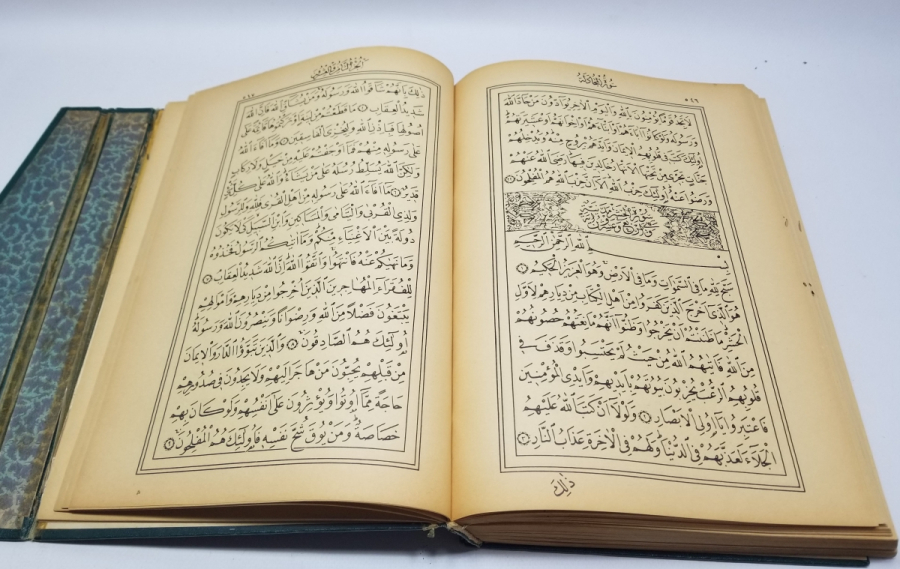 سورة المجادلة
لَا تَجِدُ قَوْمًا يُؤْمِنُونَ بِاللّٰهِ وَالْيَوْمِ الْاٰخِرِ يُوَادُّونَ مَنْ حَادَّ اللّٰهَ
وَرَسُولَهُ وَلَوْ كَانُوا اٰبَاءَهُمْ اَوْ اَبْنَاءَهُمْ اَوْ اِخْوَانَهُمْ اَوْ عَشِيرَتَهُمْ
اُولٰئِكَ كَتَبَ فِي قُلُوبِهِمُ الْاِيمَانَ وَاَيَّدَهُمْ بِرُوحٍ مِنْهُ وَيُدْخِلُهُمْ
جَنَّاتٍ تَجْرِي مِنْ تَحْتِهَا الْاَنْهَارُ خَالِدِينَ فِيهَا رَضِيَ اللّٰهُ عَنْهُمْ
وَرَضُوا عَنْهُ اُولٰئِكَ حِزْبُ اللّٰهِ اَلَا اِنَّ حِزْبَ اللّٰهِ هُمُ الْمُفْلِحُونَ
سورة الحشر مدنية
بِسْمِ اللّٰهِ الرَّحْمٰنِ الرَّحِيمِ
سَبَّحَ لِلّٰهِ مَا فِي السَّمٰوَاتِ وَمَا فِي الْاَرْضِ وَهُوَ الْعَزِيزُ الْحَكِيمُ ١
هُوَ الَّذِي اَخْرَجَ الَّذِينَ كَفَرُوا مِنْ اَهْلِ الْكِتَابِ مِنْ دِيَارِهِمْ لِاَوَّلِ
الْحَشْرِ مَا ظَنَنْتُمْ اَنْ يَخْرُجُوا وَظَنُّوا اَنَّهُمْ مَانِعَتُهُمْ حُصُونُهُمْ
مِنَ اللّٰهِ فَاَتٰيهُمُ اللّٰهُ مِنْ حَيْثُ لَمْ يَحْتَسِبُوا وَقَذَفَ فِي
قُلُوبِهِمُ الرُّعْبَ يُخْرِبُونَ بُيُوتَهُمْ بِاَيْدِيهِمْ وَاَيْدِي الْمُؤْمِنِينَ
فَاعْتَبِرُوا يَا اُولِي الْاَبْصَارِ ٢ وَلَوْلَا اَنْ كَتَبَ اللّٰهُ عَلَيْهِمُ
الْجَلَاءَ لَعَذَّبَهُمْ فِي الدُّنْيَا وَلَهُمْ فِي الْاٰخِرَةِ عَذَابُ النَّارِ ٣
ذٰلِكَ
الجزء الثامن والعشرون
ذٰلِكَ بِاَنَّهُمْ شَاقُّوا اللّٰهَ وَرَسُولَهُ وَمَنْ يُشَاقِّ اللّٰهَ فَاِنَّ اللّٰهَ
شَدِيدُ الْعِقَابِ ٤ مَا قَطَعْتُمْ مِنْ لِينَةٍ اَوْ تَرَكْتُمُوهَا قَائِمَةً عَلٰى
اُصُولِهَا فَبِاِذْنِ اللّٰهِ وَلِيُخْزِيَ الْفَاسِقِينَ ٥ وَمَا اَفَاءَ اللّٰهُ
عَلٰى رَسُولِهِ مِنْهُمْ فَمَا اَوْجَفْتُمْ عَلَيْهِ مِنْ خَيْلٍ وَلَا رِكَابٍ
وَلٰكِنَّ اللّٰهَ يُسَلِّطُ رُسُلَهُ عَلٰى مَنْ يَشَاءُ وَاللّٰهُ عَلٰى كُلِّ شَيْءٍ
قَدِيرٌ ٦ مَا اَفَاءَ اللّٰهُ عَلٰى رَسُولِهِ مِنْ اَهْلِ الْقُرٰى فَلِلّٰهِ وَلِلرَّسُولِ
وَلِذِي الْقُرْبٰى وَالْيَتَامٰى وَالْمَسَاكِينِ وَابْنِ السَّبِيلِ كَيْ لَا يَكُونَ
دُولَةً بَيْنَ الْاَغْنِيَاءِ مِنْكُمْ وَمَا اٰتٰيكُمُ الرَّسُولُ فَخُذُوهُ
وَمَا نَهٰيكُمْ عَنْهُ فَانْتَهُوا وَاتَّقُوا اللّٰهَ اِنَّ اللّٰهَ شَدِيدُ الْعِقَابِ ٧
لِلْفُقَرَاءِ الْمُهَاجِرِينَ الَّذِينَ اُخْرِجُوا مِنْ دِيَارِهِمْ وَاَمْوَالِهِمْ
يَبْتَغُونَ فَضْلًا مِنَ اللّٰهِ وَرِضْوَانًا وَيَنْصُرُونَ اللّٰهَ وَرَسُولَهُ
اُولٰئِكَ هُمُ الصَّادِقُونَ ٨ وَالَّذِينَ تَبَوَّؤُا الدَّارَ وَالْاِيمَانَ
مِنْ قَبْلِهِمْ يُحِبُّونَ مَنْ هَاجَرَ اِلَيْهِمْ وَلَا يَجِدُونَ فِي صُدُورِهِمْ
حَاجَةً مِمَّا اُوتُوا وَيُؤْثِرُونَ عَلٰى اَنْفُسِهِمْ وَلَوْ كَانَ بِهِمْ
خَصَاصَةٌ وَمَنْ يُوقَ شُحَّ نَفْسِهِ فَاُولٰئِكَ هُمُ الْمُفْلِحُونَ ٩